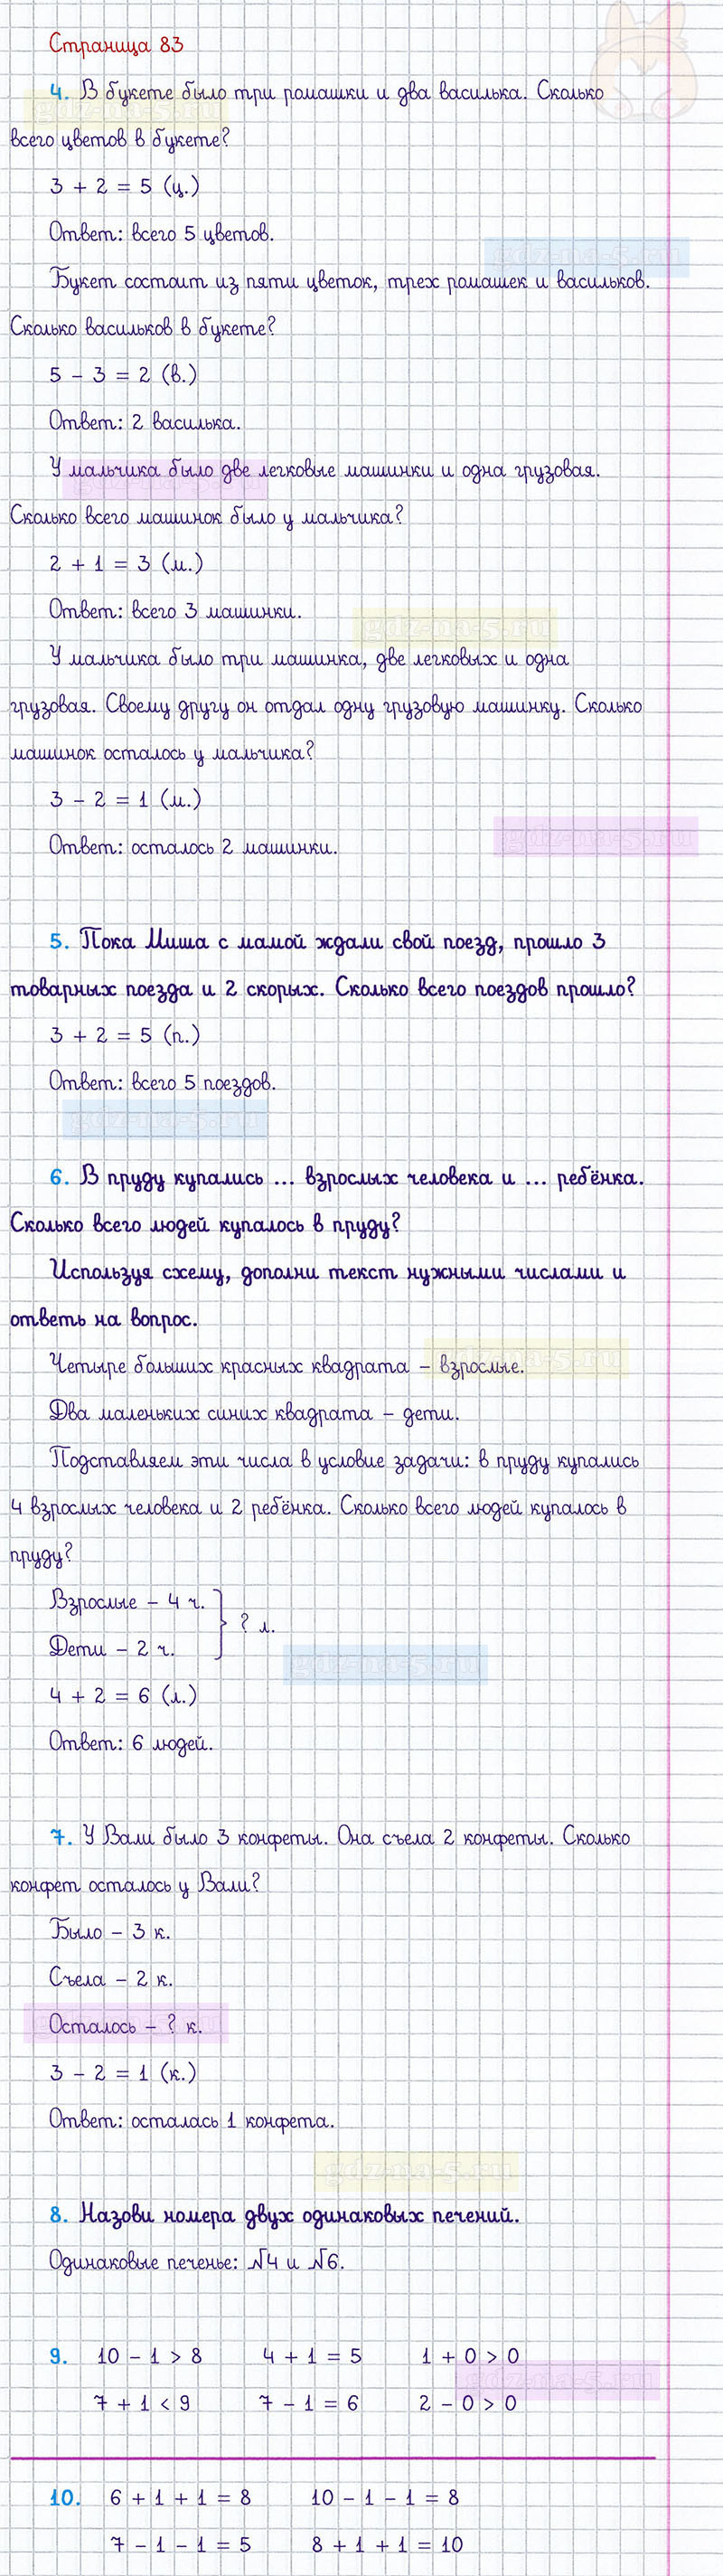 Страница 83
4. В букете было три ромашки и два василька. Сколько
всего цветов в букете?
3 + 2 = 5 (ц.)
Ответ: всего 5 цветов.
gdz-na-5.ru
Букет состоит из пяти цветок, трех ромашек и васильков.
Сколько васильков в букете?
5 - 3 = 2 (в.)
Ответ: 2 василька.
У мальчика было две легковые машинки и одна грузовая.
Сколько всего машинок было у мальчика?
2 + 1 = 3 (м.)
Ответ: всего 3 машинки.
gdz-na-5.ru
У мальчика было три машинка, две легковых и одна
грузовая. Своему другу он отдал одну грузовую машинку. Сколько
машинок осталось у мальчика?
3 - 2 = 1 (м.)
Ответ: осталось 2 машинки.
gdz-na-5.ru
5. Пока Миша с мамой ждали свой поезд, прошло 3
товарных поезда и 2 скорых. Сколько всего поездов прошло?
3 + 2 = 5 (п.)
Ответ: всего 5 поездов.
gdz-na-5.ru
6. В пруду купались ... взрослых человека и ... ребёнка.
Сколько всего людей купалось в пруду?
Используя схему, дополни текст нужными числами и
ответь на вопрос.
Четыре больших красных квадрата – взрослые.
Два маленьких синих квадрата – дети.
Подставляем эти числа в условие задачи: в пруду купались
4 взрослых человека и 2 ребёнка. Сколько всего людей купалось в
пруду?
Взрослые – 4 ч.
? л.
Дети – 2 ч.
gdz-na-5.ru
4 + 2 = 6 (л.)
Ответ: 6 людей.
7. У Вали было 3 конфеты. Она съела 2 конфеты. Сколько
конфет осталось у Вали?
Было – 3 к.
Съела – 2 к.
Осталось – ? к.
3 - 2 = 1 (к.)
Ответ: осталась 1 конфета.
gdz-na-5.ru
8. Назови номера двух одинаковых печений.
Одинаковые печенье: №4 и №6.
9. 10 - 1 > 8 4 + 1 = 5 1 + 0 > 0
gdz-na-5.ru
7 + 1 < 9 7 - 1 = 6 2 - 0 > 0
10. 6 + 1 + 1 = 8 10 - 1 - 1 = 8
7 - 1 - 1 = 5 8 + 1 + 1 = 10